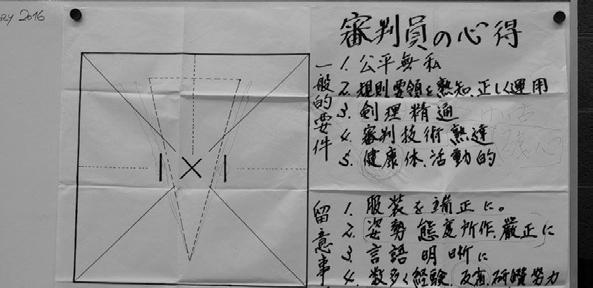 RY 2016
審判員の心得
一般的要件
1. 公平無私
2. 規則要領を熟知、正しく運用
3. 剣理精通
4. 審判技術熟達
5. 健康体、活動的
留意事
1. 服装を端正に。
2. 姿勢 態度 所作、厳正に
3. 言語明晰に
4. 数多く経験、反省、研鑽努力